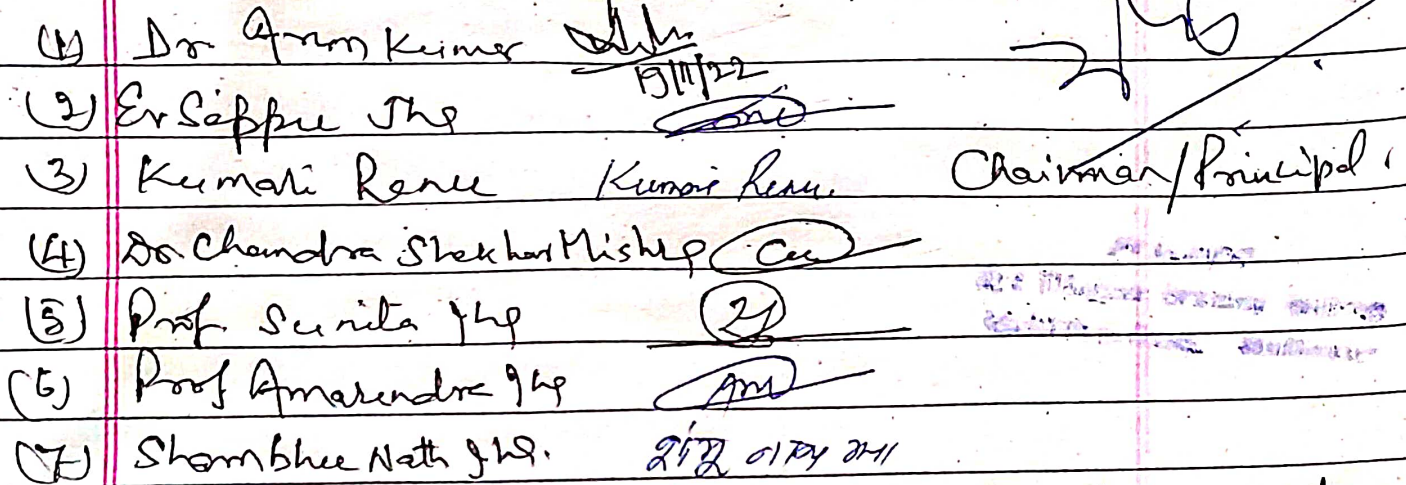 (1) Dr. Arun Kumar 19/11/22
(2) Er Sappu Jha
(3) Kumari Renu Kumari Renu. Chairman/Principal
(4) Dr. Chandra Shekhar Mishra
(5) Prof. Sunita Jha
(6) Prof Amarendra Jha
(7) Shambhu Nath Jha. शंभु नाथ झा